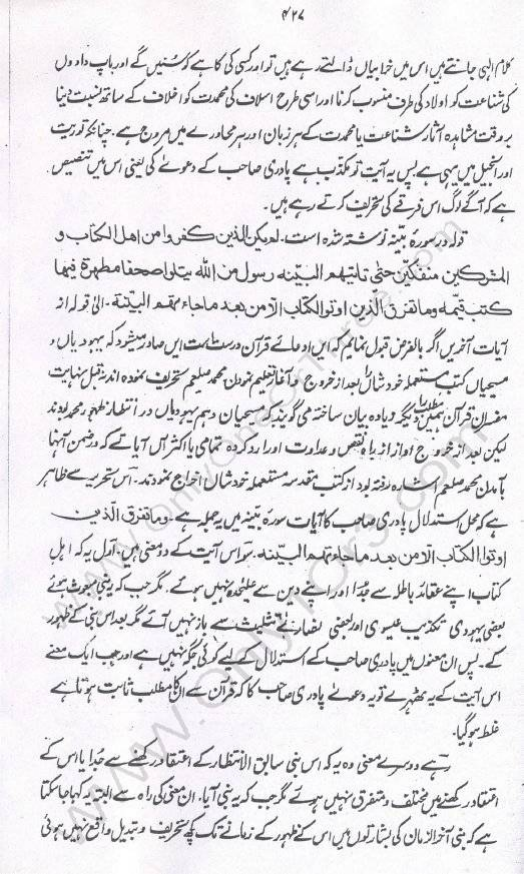 ۴۲۷
کلام الہی جانتے ہیں اس میں خرابیاں ڈالتے رہے ہیں تو اور کسی کی کاہے کو سُنیں گے اور باپ دادوں
کی شناعت کو اولاد کی طرف منسوب کرنا اور اسی طرح اسلاف کی محمدت کو اخلاف کے ساتھ نسبت دینا
بروقت مشاہدہ آثار شناعت یا محمدت کے ہر زبان اور ہر محاورے میں مروج ہے۔ چنانکہ توریت
اور انجیل میں یہی ہے پس یہ آیت تو مکذب ہے پادری صاحب کے دعوے کی یعنی اس میں تنصیص
ہے کہ آگے لوگ اس فرقے کی تحریف کرتے رہے ہیں۔
قولہ در سورۂ بینہ نوشتہ شدہ است۔ لم یکن الذین کفروا من اھل الکتاب و
المشرکین منفکین حتی تاتیھم البینہ رسول من اللہ یتلوا صحفا مطھرۃ فیھا
کتب قیمہ وما تفرق الذین اوتوا الکتاب الا من بعد ما جاءتھم البینۃ۔ الی قولہ از
آیات آخریں اگر بالفرض قبول نمائیم کہ ایں ادعائے قرآن درست است ایں صادر میشود کہ یہودیاں و
مسیحیاں کتب مستعملہ خود شاں را بعد از خروج و آغاز تعلیم نمودن محمد صلعم تحریف نمودہ اند نہ قبل نہایت
مفسران قرآن ہمیں مطلب را دیگر و زیادہ بیان ساختہ می گویند کہ مسیحیان و ہم یہودیاں در انتظار ظہور محمد بودند
لیکن بعد از خروج او از راہ نقص و عداوت اورا رد کردہ تمامی یا اکثر آں آیاتے کہ در ضمن آنہا
بآمدن محمد صلعم اشارہ رفتہ بود از کتب مقدسہ مستعملہ خود شاں اخراج نمودند۔ اس تحریر سے ظاہر
ہے کہ محل استدلال پادری صاحب کا آیات سورۂ بینہ میں یہ جملہ ہے۔ وما تفرق الذین
اوتوا الکتاب الا من بعد ما جاءتھم البینہ۔ سو اس آیت کے دو معنی ہیں۔ اول یہ کہ اہل
کتاب اپنے عقائد باطلہ سے جُدا اور اپنے دین سے علیٰحدہ نہیں ہوئے۔ مگر جب کہ یہ نبی مبعوث ہوئے
بعضی یہودی تکذیب عیسوی اور بعضی نصاریٰ تثلیث سے باز نہیں آئے مگر بعد اس نبی کے ظہور
کے۔ پس ان معنوں میں پادری صاحب کے استدلال کے لیے کوئی جگہ نہیں ہے اور جب ایک معنے
اس آیت کے یہ ٹھہرے تو یہ دعوے پادری صاحب کا کہ قرآن سے ان کا مطلب ثابت ہوتا ہے
غلط ہو گیا۔
رہے دوسرے معنی وہ یہ کہ اس نبی سابق الانتظار کے اعتقاد رکھنے سے جُدا یا اس کے
اعتقاد رکھنے میں مختلف و متفرق نہیں ہوئے مگر جب کہ یہ نبی آیا۔ ان معنی کی راہ سے البتہ یہ کہا جا سکتا
ہے کہ نبی آخر الزمان کی بشارتوں میں اس کے ظہور کے زمانے تک کچھ تحریف و تبدیل واقع نہیں ہوئی